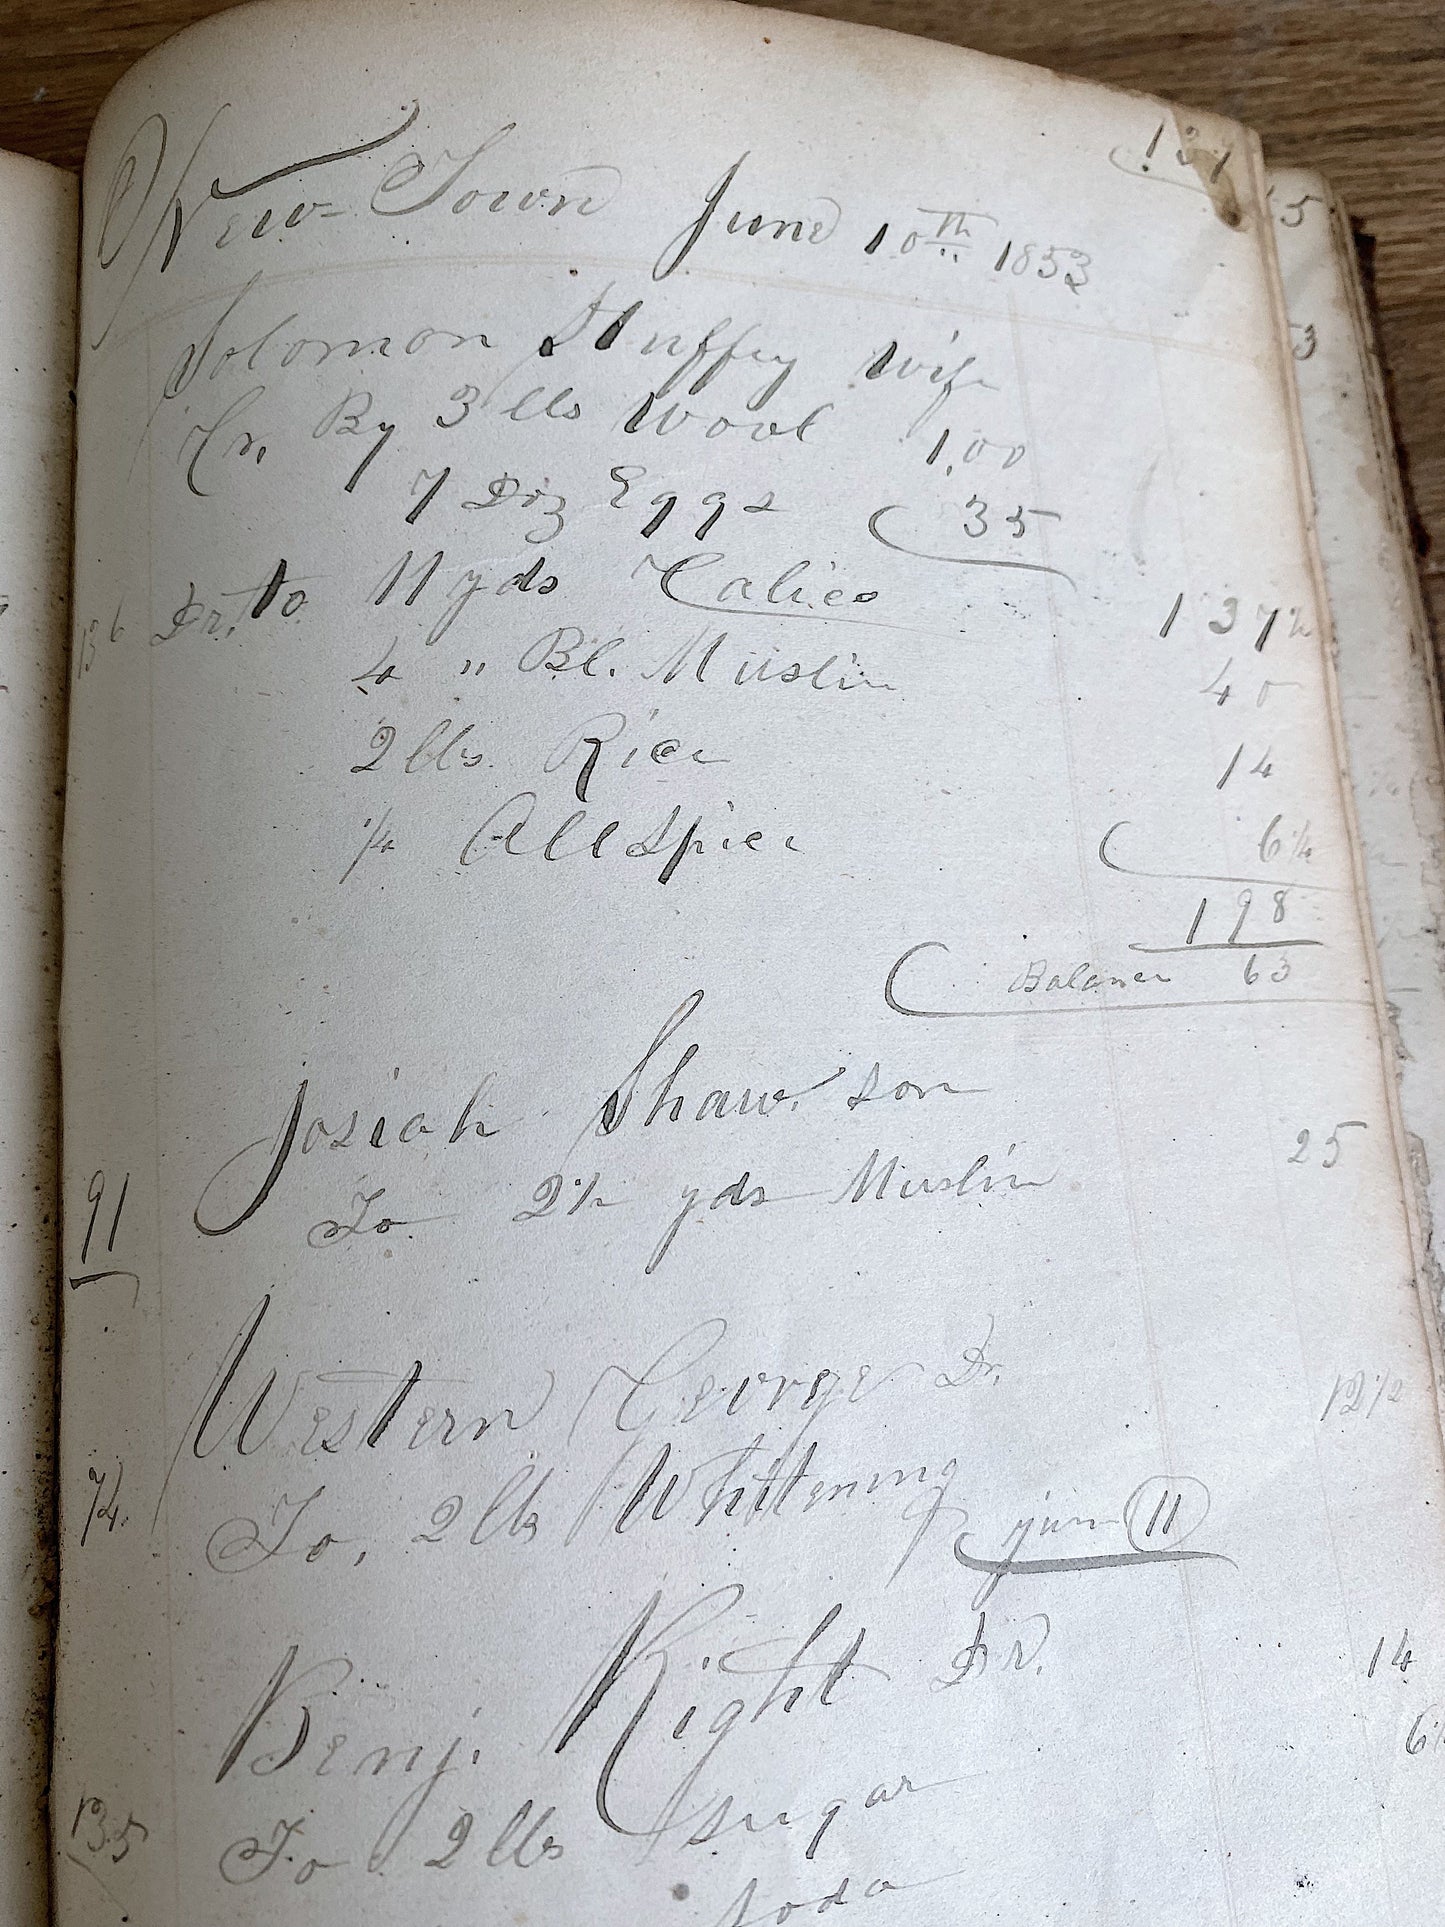 131
New-Town June 10th 1853
Solomon Huffey wife
Cr. By 3 lbs Wool 1.00
7 Doz Eggs 35
136 Dr. To 11 yds Calico 1 37½
4 " Bl. Muslin 40
2 lbs Rice 14
¼ All Spice 6¼
1 98
Balance 63
Josiah Shaw. son
91 To 2½ yds Muslin 25
Western George Dr.
74. To, 2 lbs Whitening 12½
june 11
Benj. Right Dr.
135 To 2 lbs sugar 14
soda